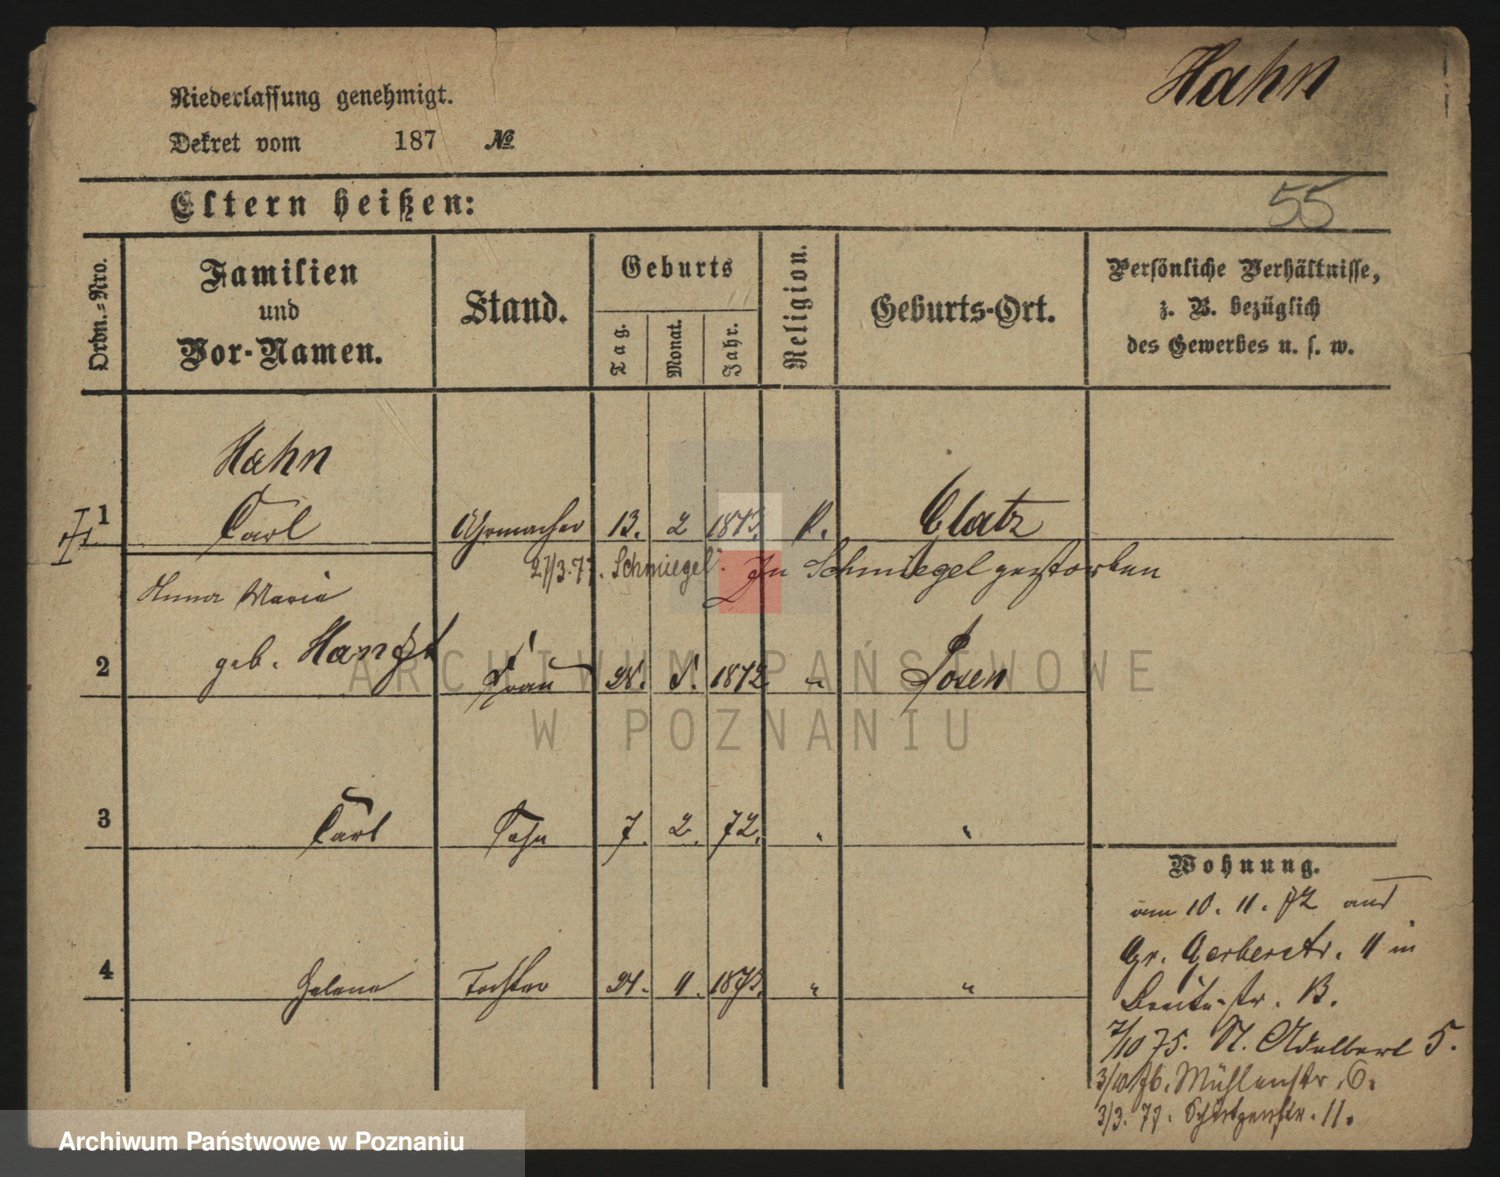 Hahn
Niederlassung genehmigt.
Dekret vom 187 №
Eltern heißen:
55
Ordn.=Nro.
Familien
und
Vor-Namen.
Stand.
Geburts
Tag.
Monat.
Jahr.
Religion.
Geburts-Ort.
Persönliche Verhältnisse,
z. B. bezüglich
des Gewerbes u. s. w.
Hahn
1 Carl Uhrmacher 13. 2 1843. Glatz
27/3.77. Schmiegel. In Schmiegel gestorben
Anna Maria
2 geb. Frau 28. 1842 " Posen
3 Carl Sohn 7. 2. 72. " "
4 Helene Tochter 24. 11. 1873. " "
Wohnung.
am 10. 11. 72 aus
Gr. Gerberstr. 11 in
Breite-str. 13.
7/10 75. St. Adalbert 5.
3/10 76. Mühlenstr. 6.
3/3. 77. Schützenstr. 11.
ARCHIWUM PAŃSTWOWE
W POZNANIU
Archiwum Państwowe w Poznaniu